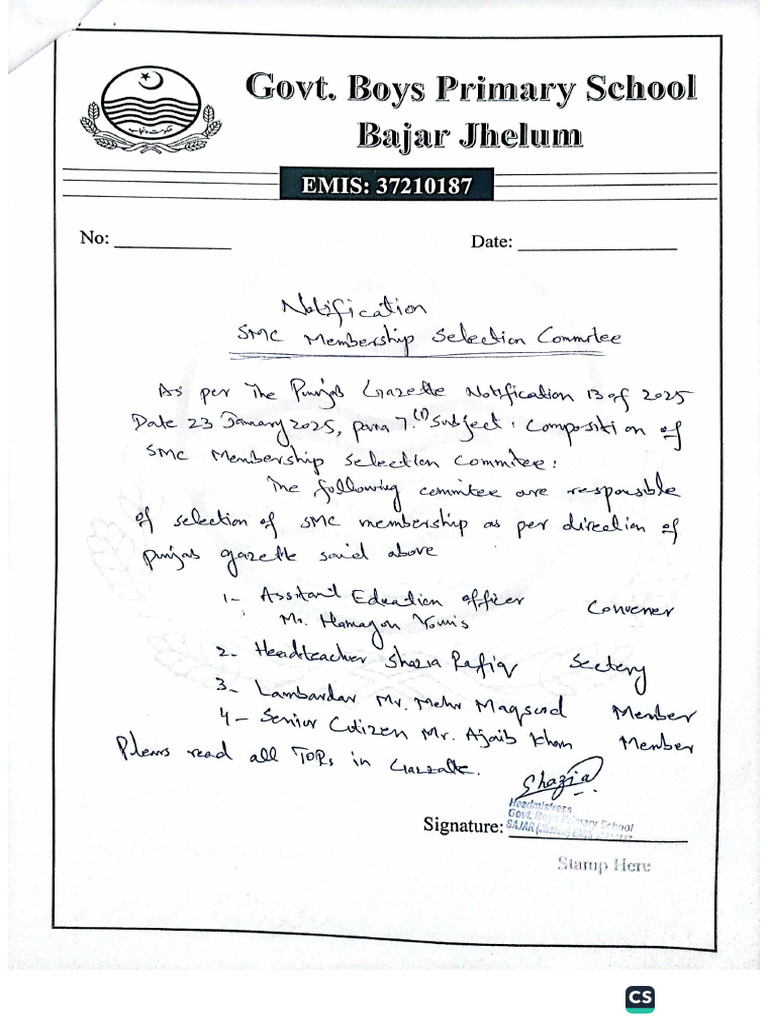 حکومت پنجاب
Govt. Boys Primary School
Bajar Jhelum
EMIS: 37210187
No: ____________ Date: ________________
Notification
SMC Membership Selection Commitee
As per The Punjab Gazette Notification 13 of 2025
Date 23 January 2025, para 7.(1) Subject: Composition of
SMC Membership Selection Commitee:
The following commitee are responsible
of selection of SMC membership as per direction of
punjab gazette said above
1- Assitant Eduation officer Convener
Mr. Hamayon Younis
2- Headteacher Shazia Rafiq Sectery
3- Lambardar Mr. Mehr Maqsood Member
4- Senior Citizen Mr. Ajaib Khan Member
read all TORs in Gazzatte.
Shazia
Headmistress
Govt. Boys Primary School
Signature: BAJAR (Jhelum)
Stamp Here
CS